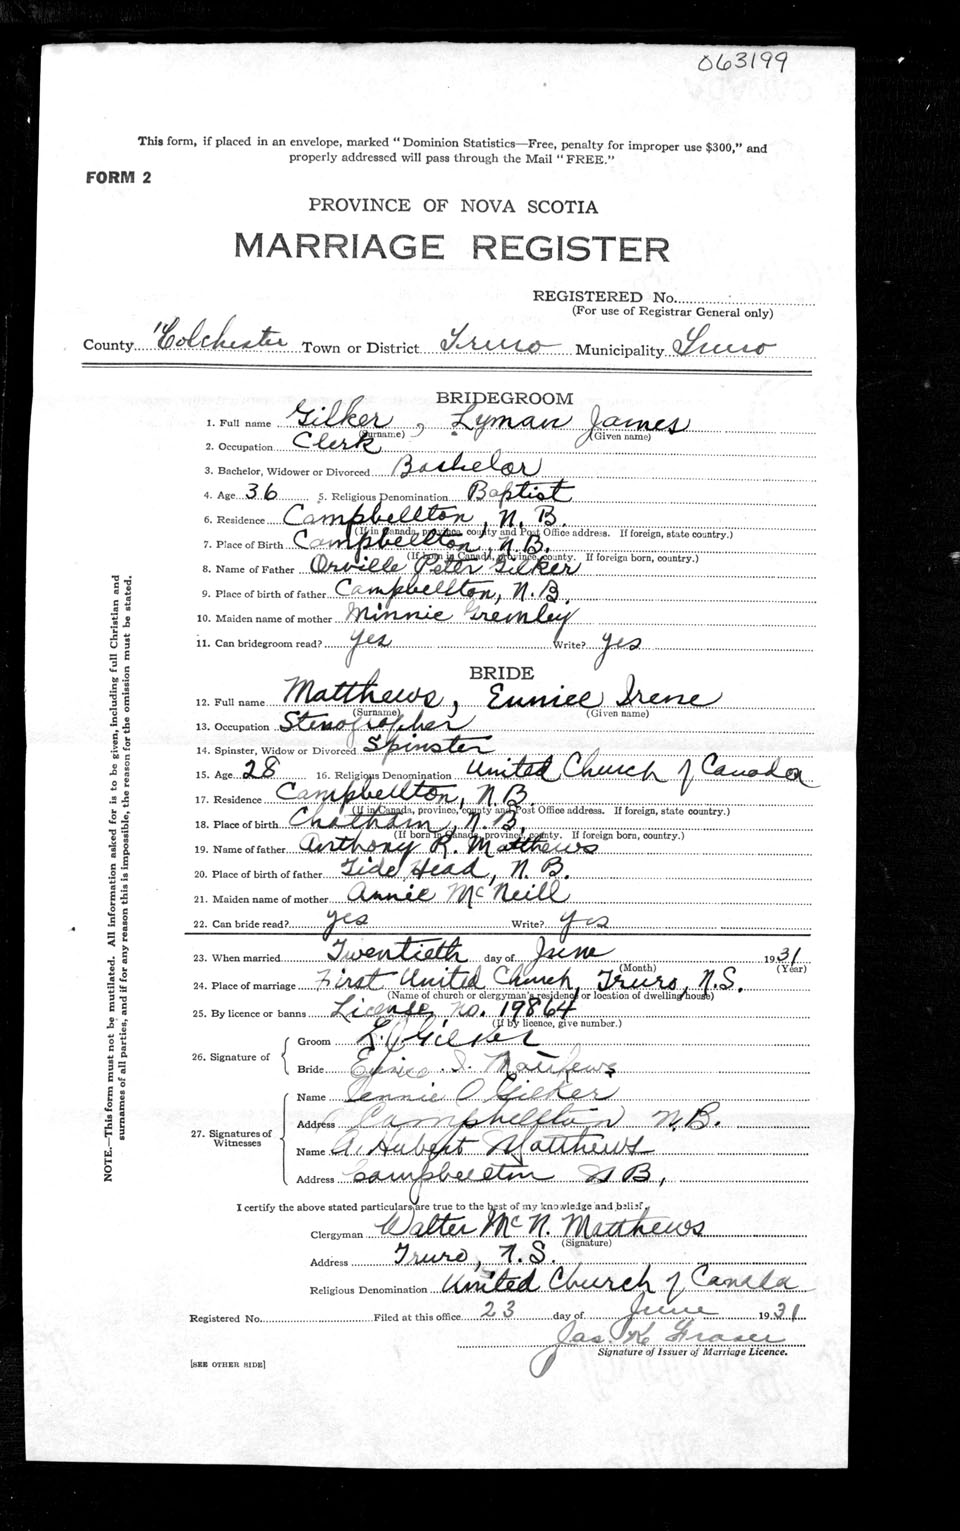 063199
This form, if placed in an envelope, marked "Dominion Statistics—Free, penalty for improper use $300," and
properly addressed will pass through the Mail "FREE."
FORM 2
PROVINCE OF NOVA SCOTIA
MARRIAGE REGISTER
REGISTERED No.
(For use of Registrar General only)
County Colchester Town or District Truro Municipality Truro
BRIDEGROOM
1. Full name Gilker, Lyman James
(Surname) (Given name)
2. Occupation Clerk
3. Bachelor, Widower or Divorced Bachelor
4. Age 36 5. Religious Denomination Baptist
6. Residence Campbellton, N.B.
(If in Canada, province, county and Post Office address. If foreign, state country.)
7. Place of Birth Campbellton, N.B.
(If born in Canada, province, county. If foreign born, country.)
8. Name of Father Orville Peter Gilker
9. Place of birth of father Campbellton, N.B.
10. Maiden name of mother Minnie Gremley
11. Can bridegroom read? yes Write? yes
BRIDE
12. Full name Matthews, Eunice Irene
(Surname) (Given name)
13. Occupation Stenographer
14. Spinster, Widow or Divorced Spinster
15. Age 28 16. Religious Denomination United Church of Canada
17. Residence Campbellton, N.B.
(If in Canada, province, county and Post Office address. If foreign, state country.)
18. Place of birth Chatham, N.B.
(If born in Canada, province, county. If foreign born, country.)
19. Name of father Anthony R. Matthews
20. Place of birth of father Tide Head, N.B.
21. Maiden name of mother Annie McNeill
22. Can bride read? yes Write? yes
23. When married Twentieth day of June 1931
(Month) (Year)
24. Place of marriage First United Church, Truro, N.S.
(Name of church or clergyman's residence or location of dwelling house)
25. By licence or banns License, no. 19864
(If by licence, give number.)
26. Signature of
Groom L. J. Gilker
Bride Eunice I. Matthews
27. Signatures of Witnesses
Name Jennie O Gilker
Address Campbellton N.B.
Name A. Hubert Matthews
Address Campbellton N B,
I certify the above stated particulars are true to the best of my knowledge and belief,
Clergyman Walter McN. Matthews
(Signature)
Address Truro, N.S.
Religious Denomination United Church of Canada
Registered No. Filed at this office 23 day of June 1931
Jas. K Fraser
Signature of Issuer of Marriage Licence.
[SEE OTHER SIDE]
NOTE.—This form must not be mutilated. All information asked for is to be given, including full Christian and
surnames of all parties, and if for any reason this is impossible, the reason for the omission must be stated.